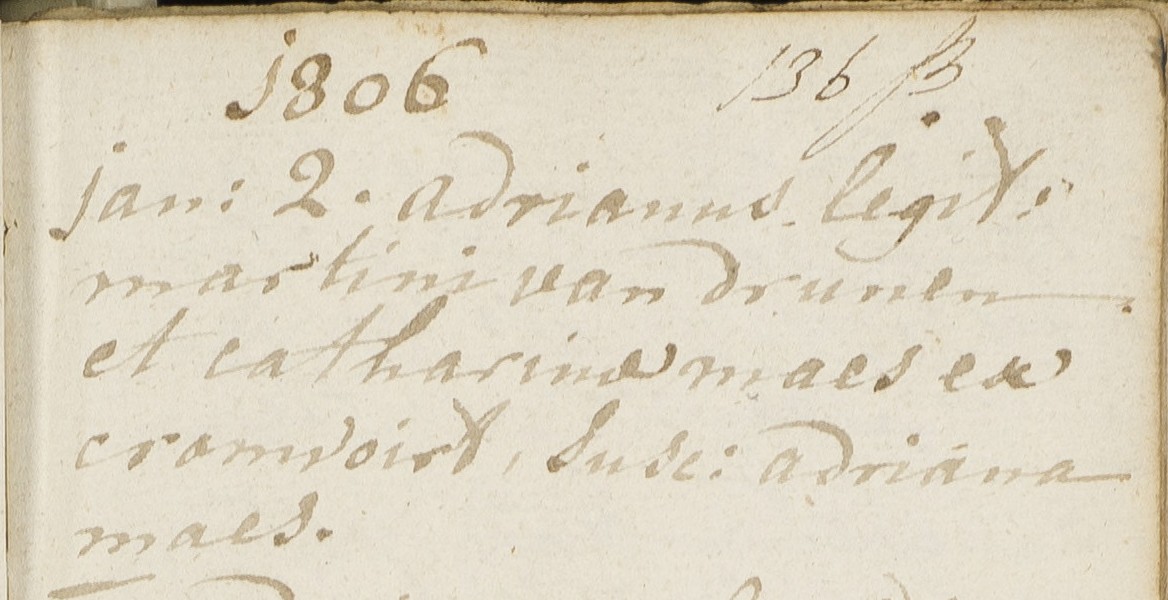 1806 136
jan: 2. adrianus legit:
martini van drunen
et catharina maes ex
cromvoirt, susc: adriana
maes.